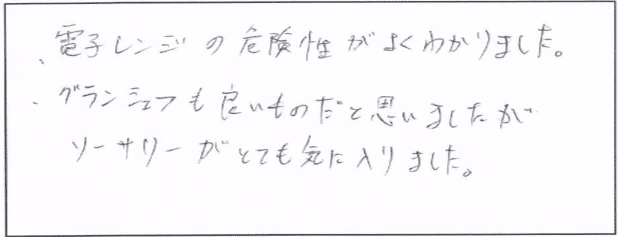 、電子レンジの危険性がよくわかりました。
、グランシェフも良いものだと思いましたが
ソーサリーがとても気に入りました。